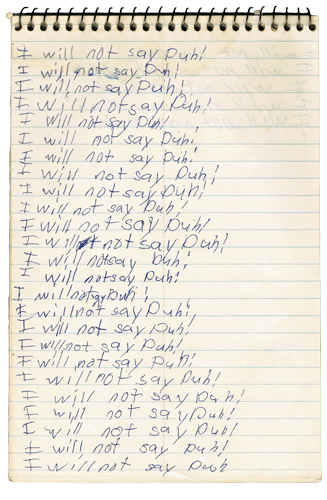 I will not say Duh!
I will not say Duh!
I will not say Duh!
I will not say Duh!
I will not say Duh!
I will not say Duh!
I will not say Duh!
I will not say Duh!
I will not say Duh!
I will not say Duh!
I will not say Duh!
I will not say Duh!
I will not say Duh!
I will not say Duh!
I will not say Duh!
I will not say Duh!
I will not say Duh!
I will not say Duh!
I will not say Duh!
I will not say Duh!
I will not say Duh!
I will not say Duh!
I will not say Duh!
I will not say Duh!
I will not say Duh